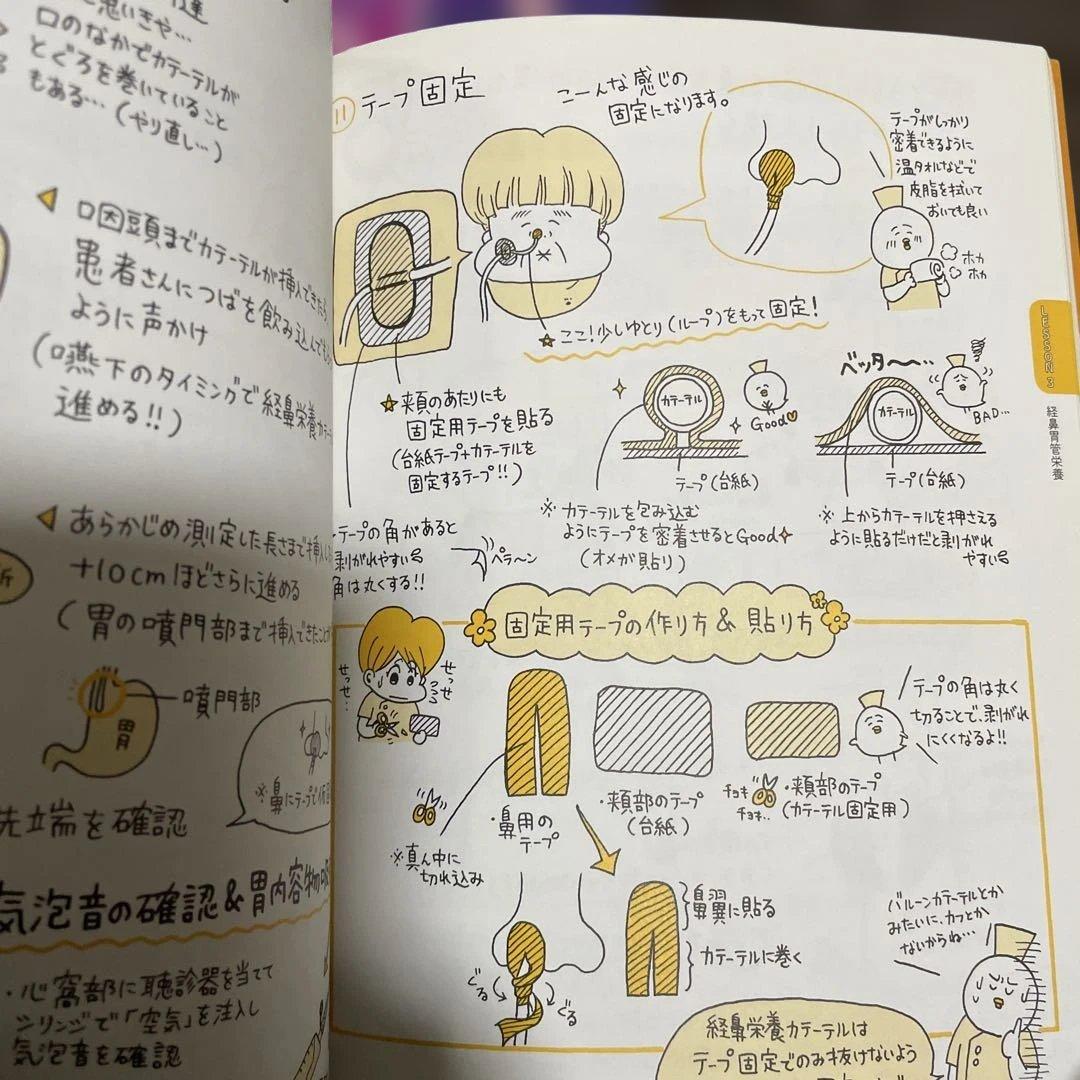 と思いきや…
口のなかでカテーテルが
とぐろを巻いていること
もある…(やり直し…)
咽頭までカテーテルが挿入できたら、
患者さんにつばを飲み込んでも
ように声かけ
(嚥下のタイミングで経鼻栄養カテー
進める!!)
あらかじめ測定した長さまで挿入し
+10cmほどさらに進める
(胃の噴門部まで挿入できたこと
噴門部
胃
※鼻にテープで仮固
先端を確認
気泡音の確認&胃内容物の
・心窩部に聴診器を当てて
シリンジで「空気」を注入し
気泡音を確認
⑪ テープ固定
こーんな感じの
固定になります。
テープがしっかり
密着できるように
温タオルなどで
皮脂を拭いて
おいても良い
ホカ
ホカ
☆ここ!少しゆとり(ループ)をもって固定!
☆頬のあたりにも
固定用テープを貼る
(台紙テープ+カテーテルを
固定するテープ!!)
テープの角があると
剥がれやすい
角は丸くする!!
ペラ〜ン
カテーテル
Good
テープ(台紙)
※カテーテルを包み込む
ようにテープを密着させるとGood
(オメガ貼り)
ベッタ〜〜…
カテーテル
BAD…
テープ(台紙)
※上からカテーテルを押さえる
ように貼るだけだと剥がれ
やすい
LESSON 3
経鼻胃管栄養
固定用テープの作り方&貼り方
せっせ…
せっせ
・鼻用の
テープ
※真ん中に
切れ込み
・頬部のテープ
(台紙)
チョキ
チョキ..
・頬部のテープ
(カテーテル固定用)
テープの角は丸く
切ることで、剥がれ
にくくなるよ!!
鼻翼に貼る
カテーテルに巻く
ぐる
ぐる
バルーンカテーテルとか
みたいに、カフとか
ないからね…
経鼻栄養カテーテルは
テープ固定でのみ抜けないよう